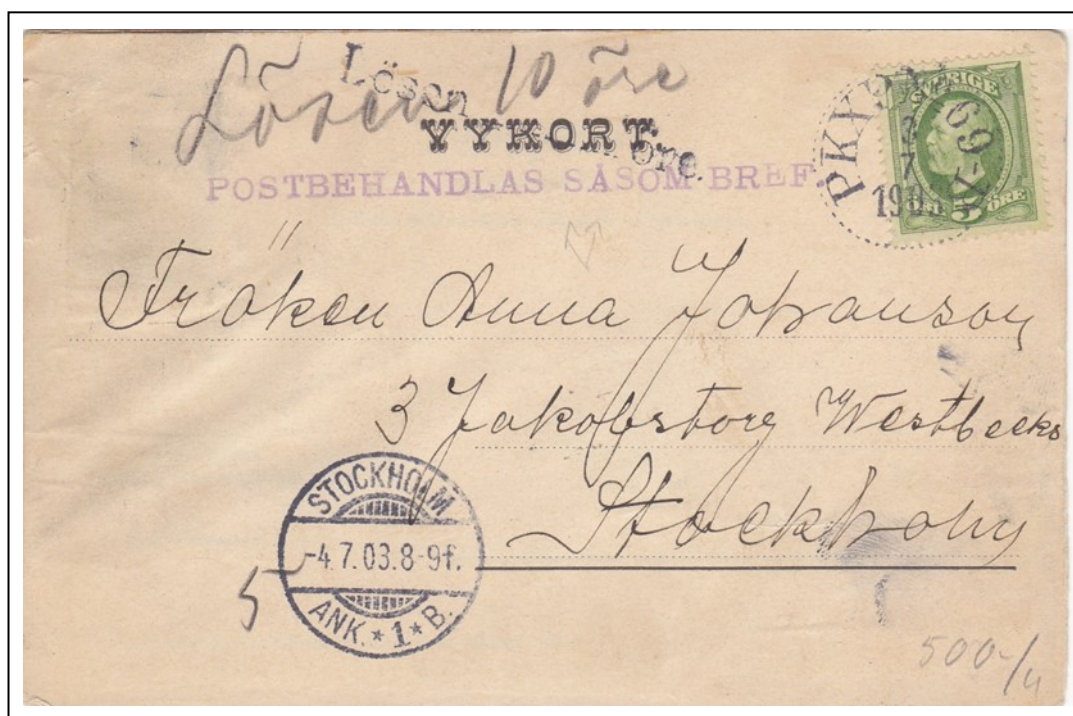 Lösen 10 öre
Lösen
öre.
VYKORT.
POSTBEHANDLAS SÅSOM BREF.
SVERIGE
ÖRE
PKXP. Nº 69.
7
1903
Fröken Anna Johanson
3 Jakobstorg Westbecks
Stockholm
STOCKHOLM
-4.7.03.8-9f.
ANK.*1*B.
5
500-/4